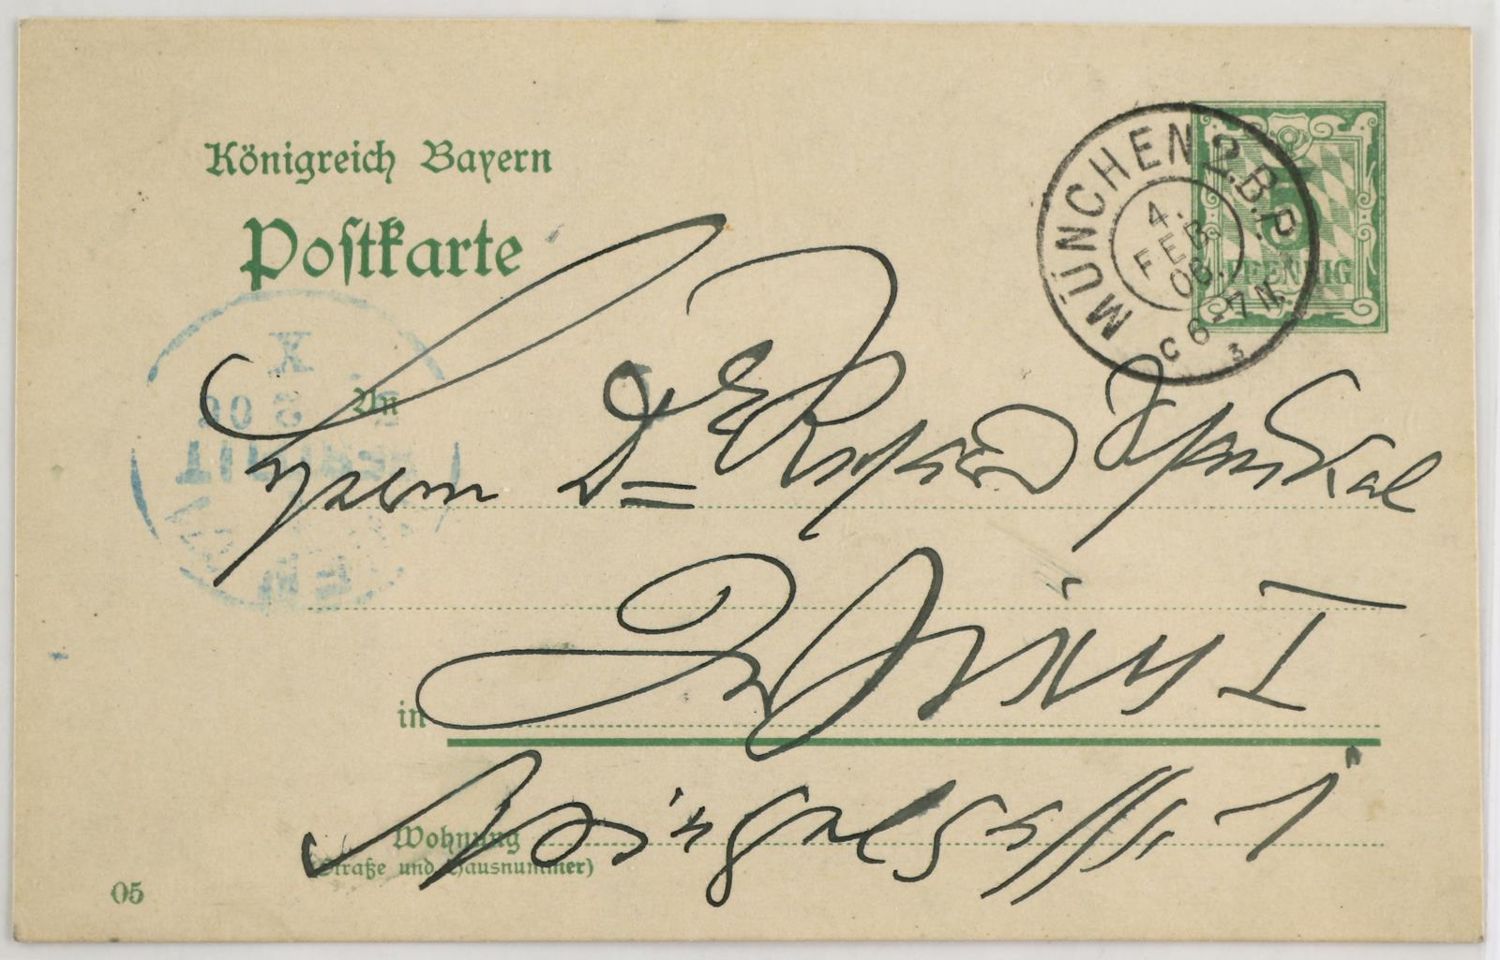 Königreich Bayern
Postkarte
MÜNCHEN 2.B.P.
4.
FEB.
06.
C 6-7 N.
3
5
PFENNIG
An
Herrn Dr Richard
in
Wien I
Wohnung
(Straße und Hausnummer)
Spiegelgasse 1
05